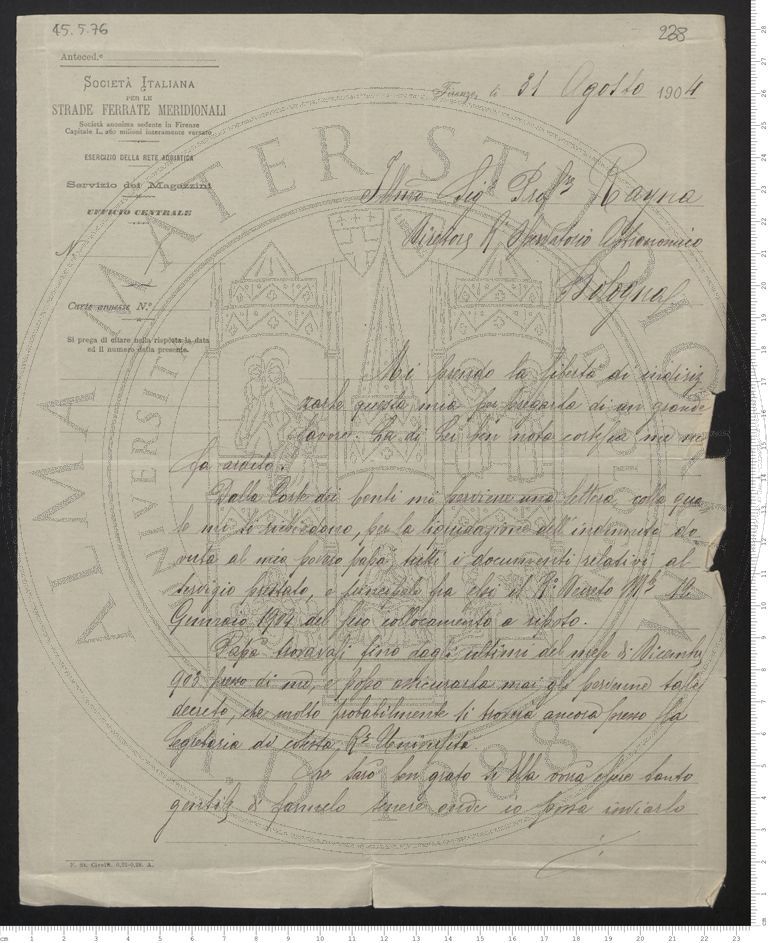 45.5.76
228
Anteced.e
SOCIETÀ ITALIANA
PER LE
STRADE FERRATE MERIDIONALI
Società anonima sedente in Firenze
Capitale L. 260 milioni interamente versato
ESERCIZIO DELLA RETE ADRIATICA
Servizio dei Magazzini
UFFICIO CENTRALE
N.
Carte annesse N.°
Si prega di citare nella risposta la data
ed il numero della presente.
Firenze, li 31 Agosto 1904
Illmo Sig Profre Rayna
Direttore Ro Osservatorio Astronomico
Bologna
Mi prendo la libertà di indiriz
zarle questa mia per pregarla di un grande
favore. La di Lei ben nota cortesia me ne
fa ardito.
Dalla Corte dei Conti mi perviene una lettera, colla qua
le mi si richiedono, per la liquidazione dell'indennità do
vuta al mio povero papà, tutti i documenti relativi al
servizio prestato, e principale fra essi il Ro Decreto
Gennaio 1904 del suo collocamento a riposo.
Papà trovavasi fino dagli ultimi del mese di Dicembre
903 presso di me, e posso assicurarla mai gli pervenne tale
decreto, che molto probabilmente si troverà ancora presso la
Segreteria di cotesta Ra Università.
Le sarò ben grato se Ella vorrà essere tanto
gentile di farmelo tenere onde io possa inviarlo
ALMA MATER STUDIORUM
UNIVERSITÀ DI BOLOGNA
A.D. 1088